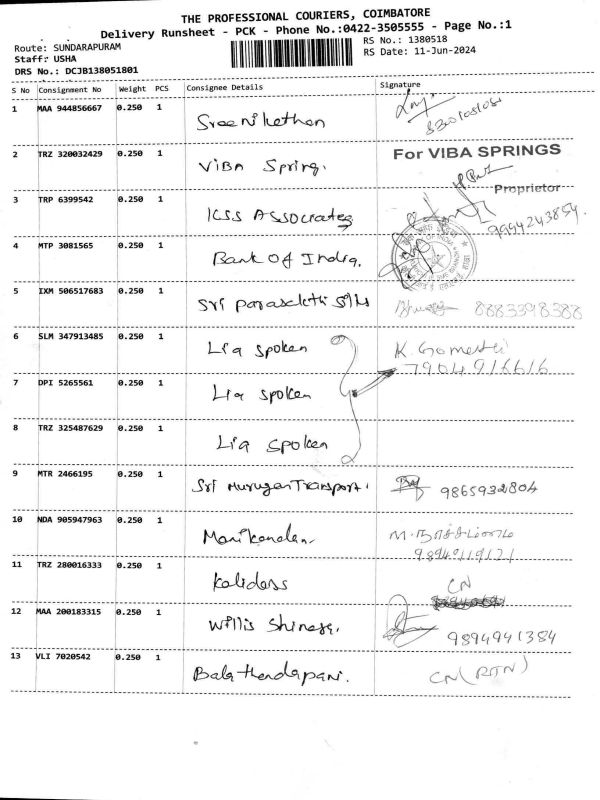 THE PROFESSIONAL COURIERS, COIMBATORE
Delivery Runsheet - PCK - Phone No.:0422-3505555 - Page No.:1
Route: SUNDARAPURAM
RS No.: 1380518
Staff: USHA
RS Date: 11-Jun-2024
DRS No.: DCJB138051801
S No Consignment No Weight PCS Consignee Details Signature
1 MAA 944856667 0.250 1 Sreenikethan
2 TRZ 320032429 0.250 1 ViBA Spring.
For VIBA SPRINGS
Proprietor
3 TRP 6399542 0.250 1 ICSS Associates 9994243854.
4 MTP 3081565 0.250 1 Bank Of India.
5 IXM 506517683 0.250 1 Sri Parasakthi Silks 8883398388
6 SLM 347913485 0.250 1 Lia spoken K. Gomathi
7904916616
7 DPI 5265561 0.250 1 Lia spoken
8 TRZ 325487629 0.250 1 Lia spoken
9 MTR 2466195 0.250 1 Sri Murugan Transport. 9865932804
10 NDA 905947963 0.250 1 Manikandan
11 TRZ 280016333 0.250 1 Kalidass CN
12 MAA 200183315 0.250 1 Willis 9894941384
13 VLI 7020542 0.250 1 Balathandapani. CN (RTN)